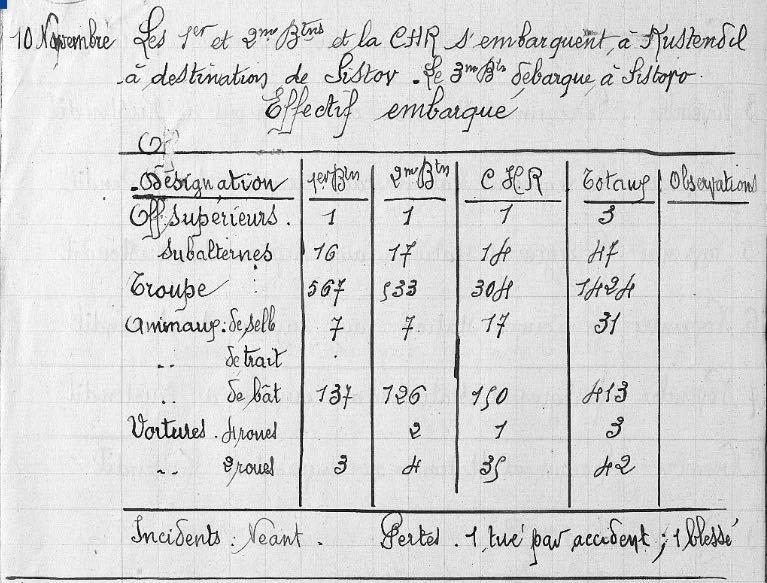 10 Novembre Les 1er et 2me Btns et la CHR s'embarquent, à Kustendil
à destination de Sistov. Le 3me Btn débarque, à Sistovo.
Effectif embarqué
Désignation 1er Btn 2me Btn CHR Totaux Observations
Off. Supérieurs. 1 1 1 3
Subalternes 16 17 14 47
Troupe 567 533 304 1424
Animaux: de selle 7 7 17 31
" de trait
" de bât 137 126 150 413
Voitures. 4 roues 2 1 3
" 2 roues 3 4 35 42
Incidents: Néant. Pertes. 1 tué par accident; 1 blessé